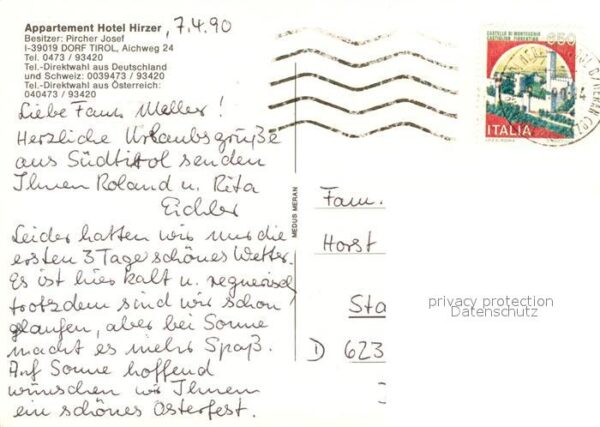 Appartement Hotel Hirzer, 7.4.90
Besitzer: Pircher Josef
I-39019 DORF TIROL, Aichweg 24
Tel. 0473 / 93420
Tel.-Direktwahl aus Deutschland
und Schweiz: 0039473 / 93420
Tel.-Direktwahl aus Österreich:
040473 / 93420
Liebe Fam. Meller!
Herzliche Urlaubsgrüße
aus Südtirol senden
Ihnen Roland u. Rita
Eichler
Leider hatten wir nur die
ersten 3 Tage schönes Wetter.
Es ist hier kalt u. regnerisch
trotzdem sind wir schon
gelaufen, aber bei Sonne
macht es mehr Spaß.
Auf Sonne hoffend
wünschen wir Ihnen
ein schönes Osterfest.
MEDUS MERAN
CASTELLO DI MONTECCHIO
CASTIGLION FIORENTINO
650
ITALIA
Fam.
Horst
Sta
D 623
privacy protection
Datenschutz